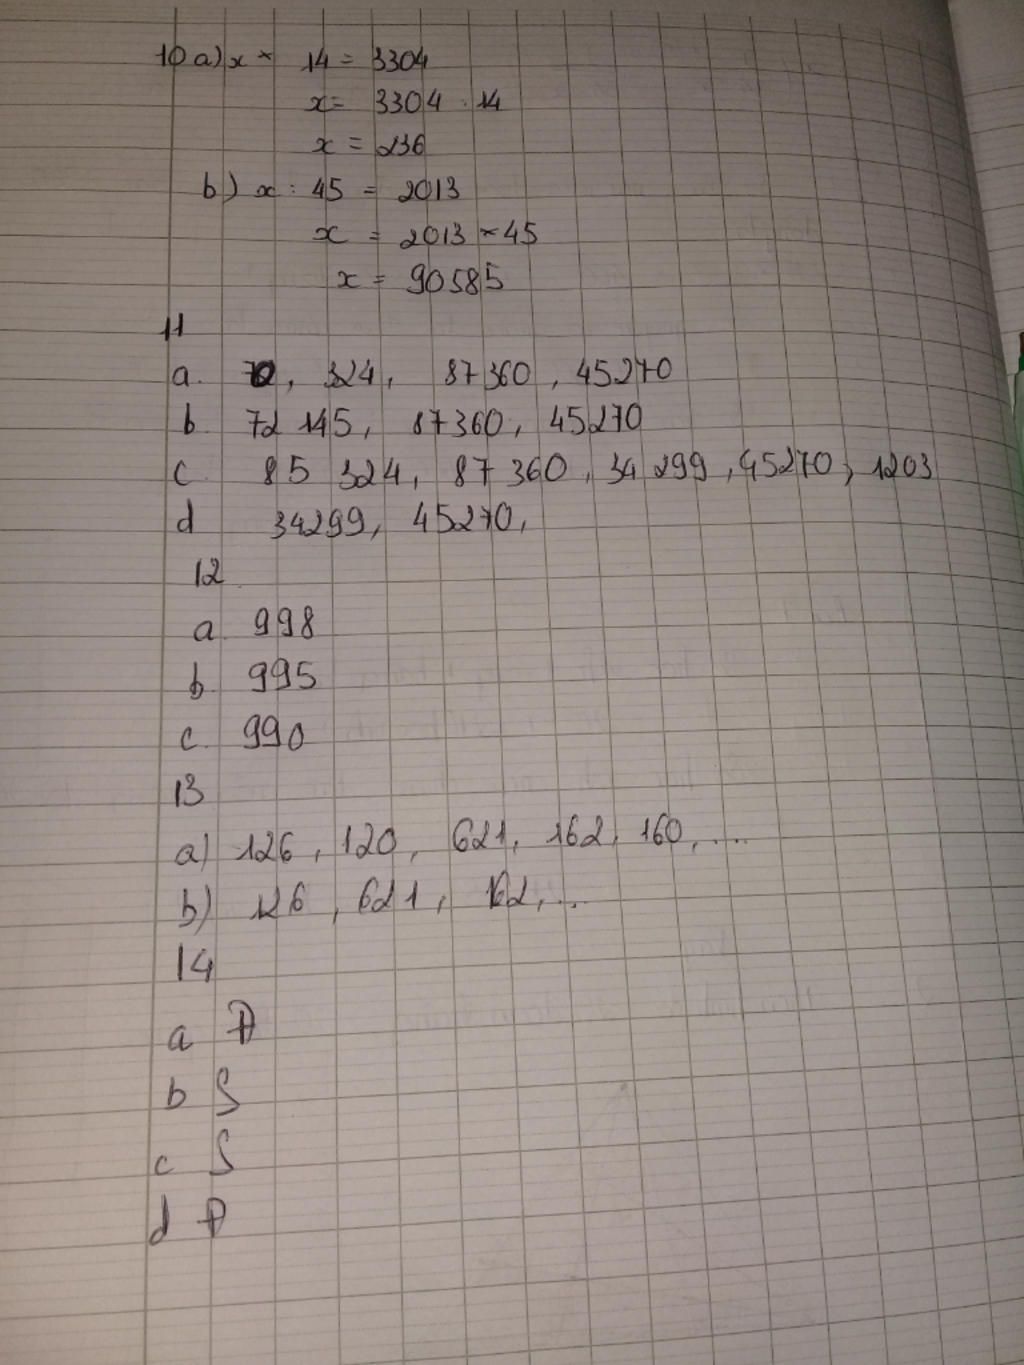 10 a) x × 14 = 3304
x = 3304 : 14
x = 236
b) x : 45 = 2013
x = 2013 × 45
x = 90585
11
a. 70, 324, 87360, 45270
b. 72 145, 87360, 45270
c. 85 324, 87 360, 34 299, 45270, 1203
d 34299, 45270,
12
a. 998
b. 995
c. 990
13
a) 126, 120, 621, 162, 160, ....
b) 126, 621, 162, ...
14
a Đ
b S
c S
d Đ